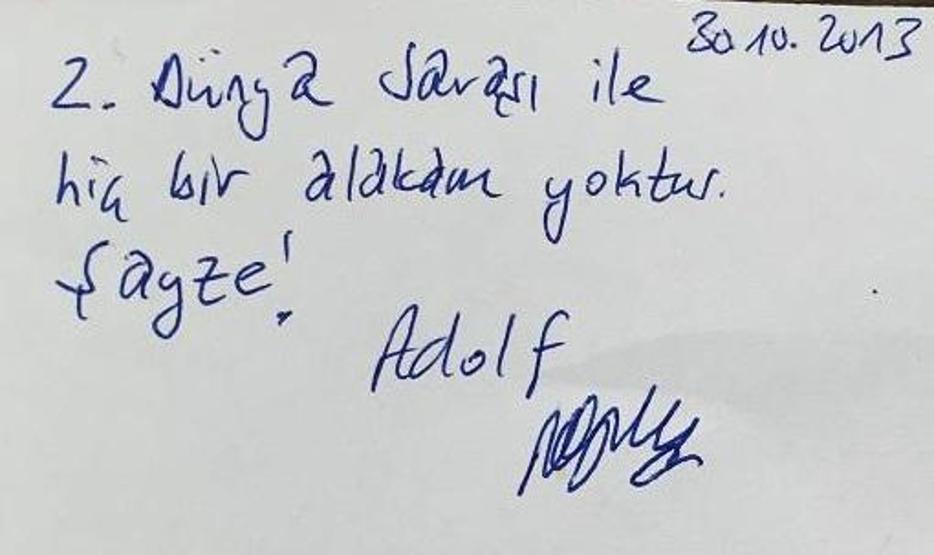 30.10.2013
2. Dünya Savaşı ile
hiç bir alakam yoktur.
Şayze!
Adolf